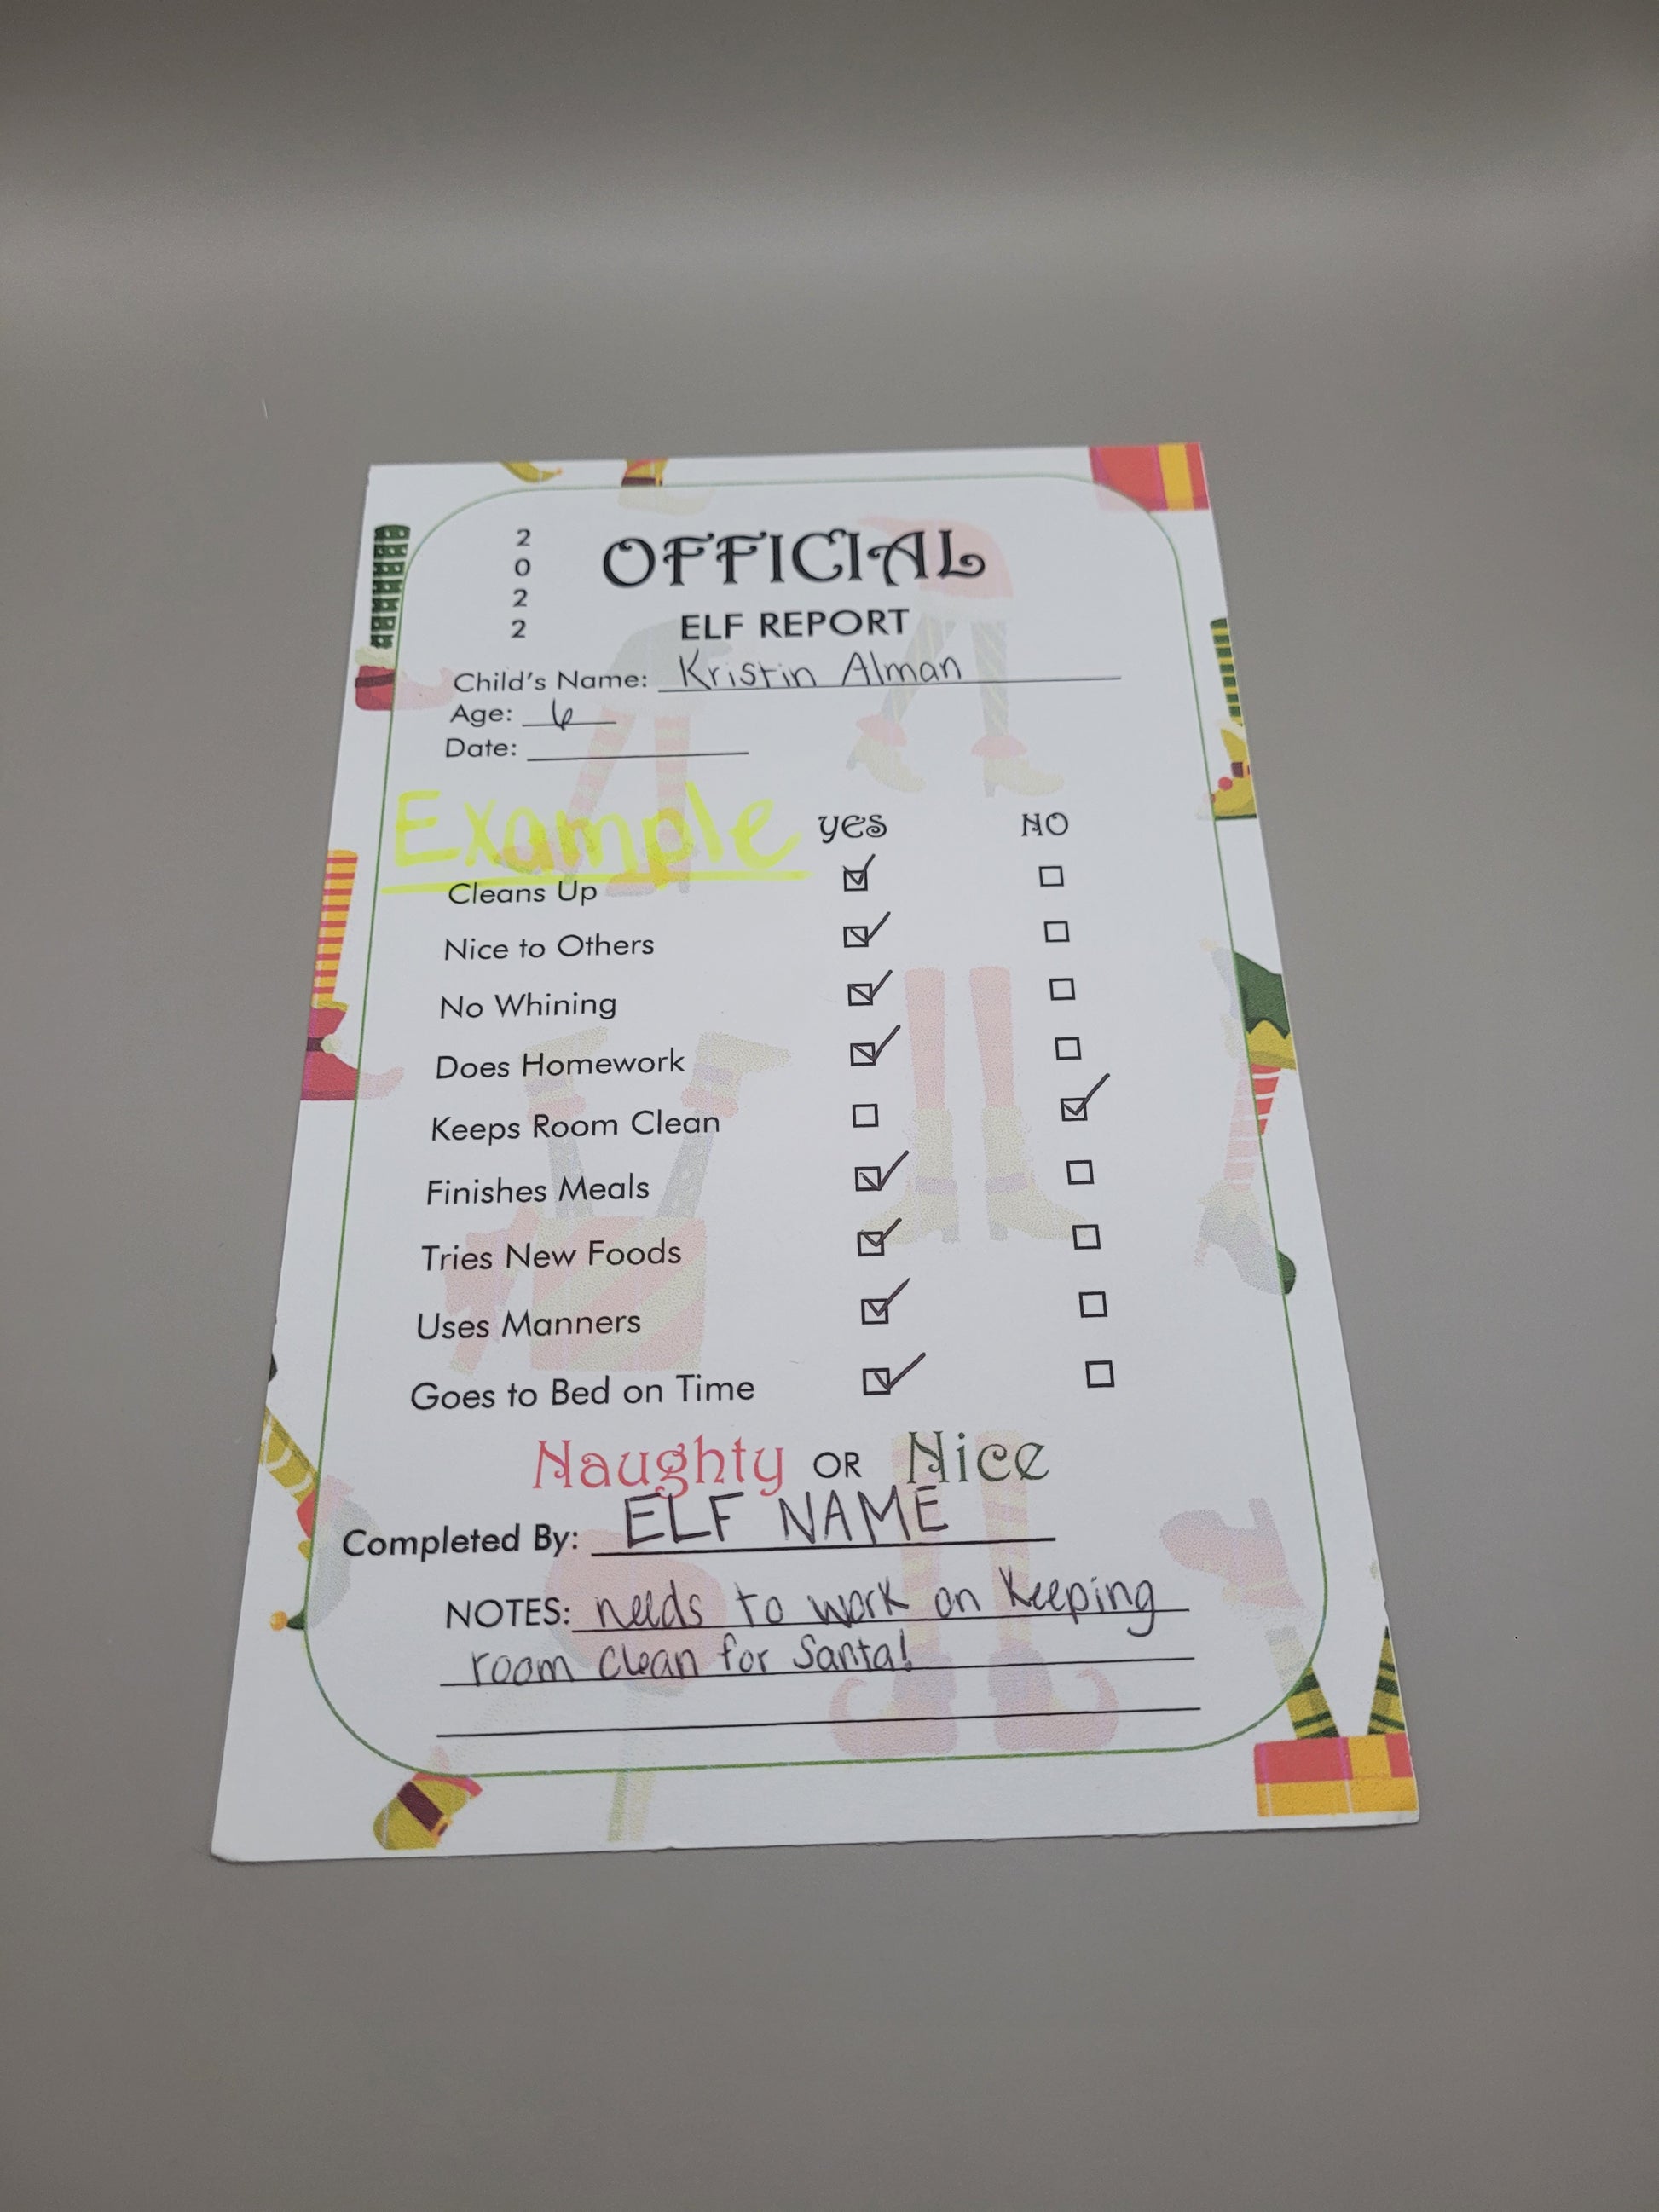 2
0
2
2
OFFICIAL
ELF REPORT
Child's Name: Kristin Alman
Age: 6
Date:
Example
YES NO
Cleans Up
Nice to Others
No Whining
Does Homework
Keeps Room Clean
Finishes Meals
Tries New Foods
Uses Manners
Goes to Bed on Time
Naughty OR Nice
Completed By: ELF NAME
NOTES: needs to work on keeping
room clean for Santa!